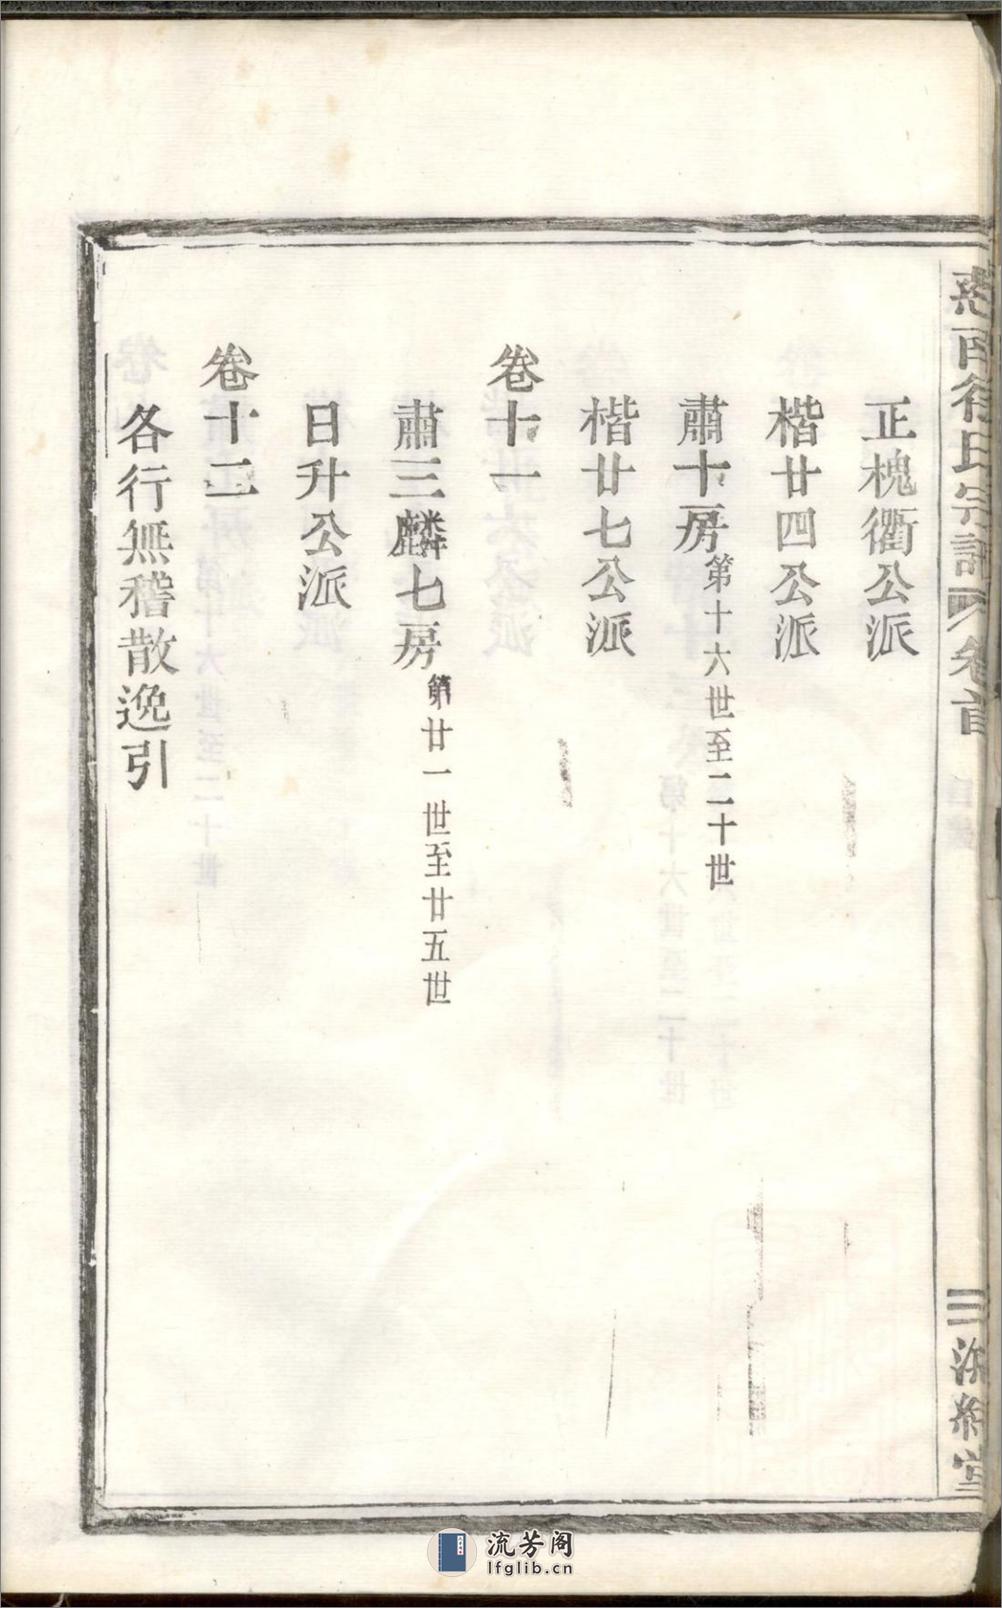 正槐衢公派
楷廿四公派
肅十房 第十六世至二十世
楷廿七公派
卷十一
肅三麟七房 第廿一世至廿五世
日升公派
卷十二
各行無稽散逸引
徐氏宗譜 卷首
三
流芳阁
lfglib.cn